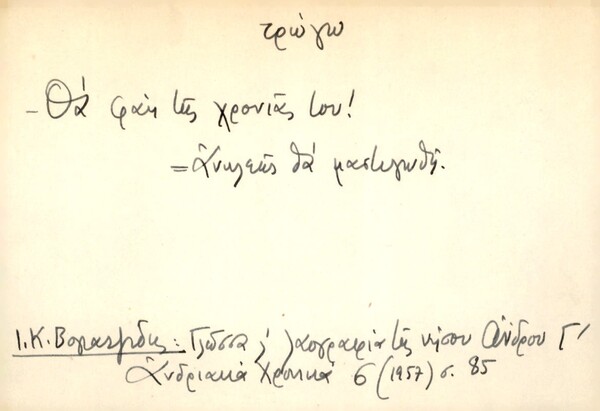 τρώγω
– Θά φάη τῆς χρονιᾶς του!
= Ἀνηλεῶς θά μαστιγωθῆ.
Ι. Κ. Βογιατζίδης: Γλῶσσα & λαογραφία τῆς νήσου Ἄνδρου Γ'
Ἀνδριακά Χρονικά 6 (1957) σ. 85